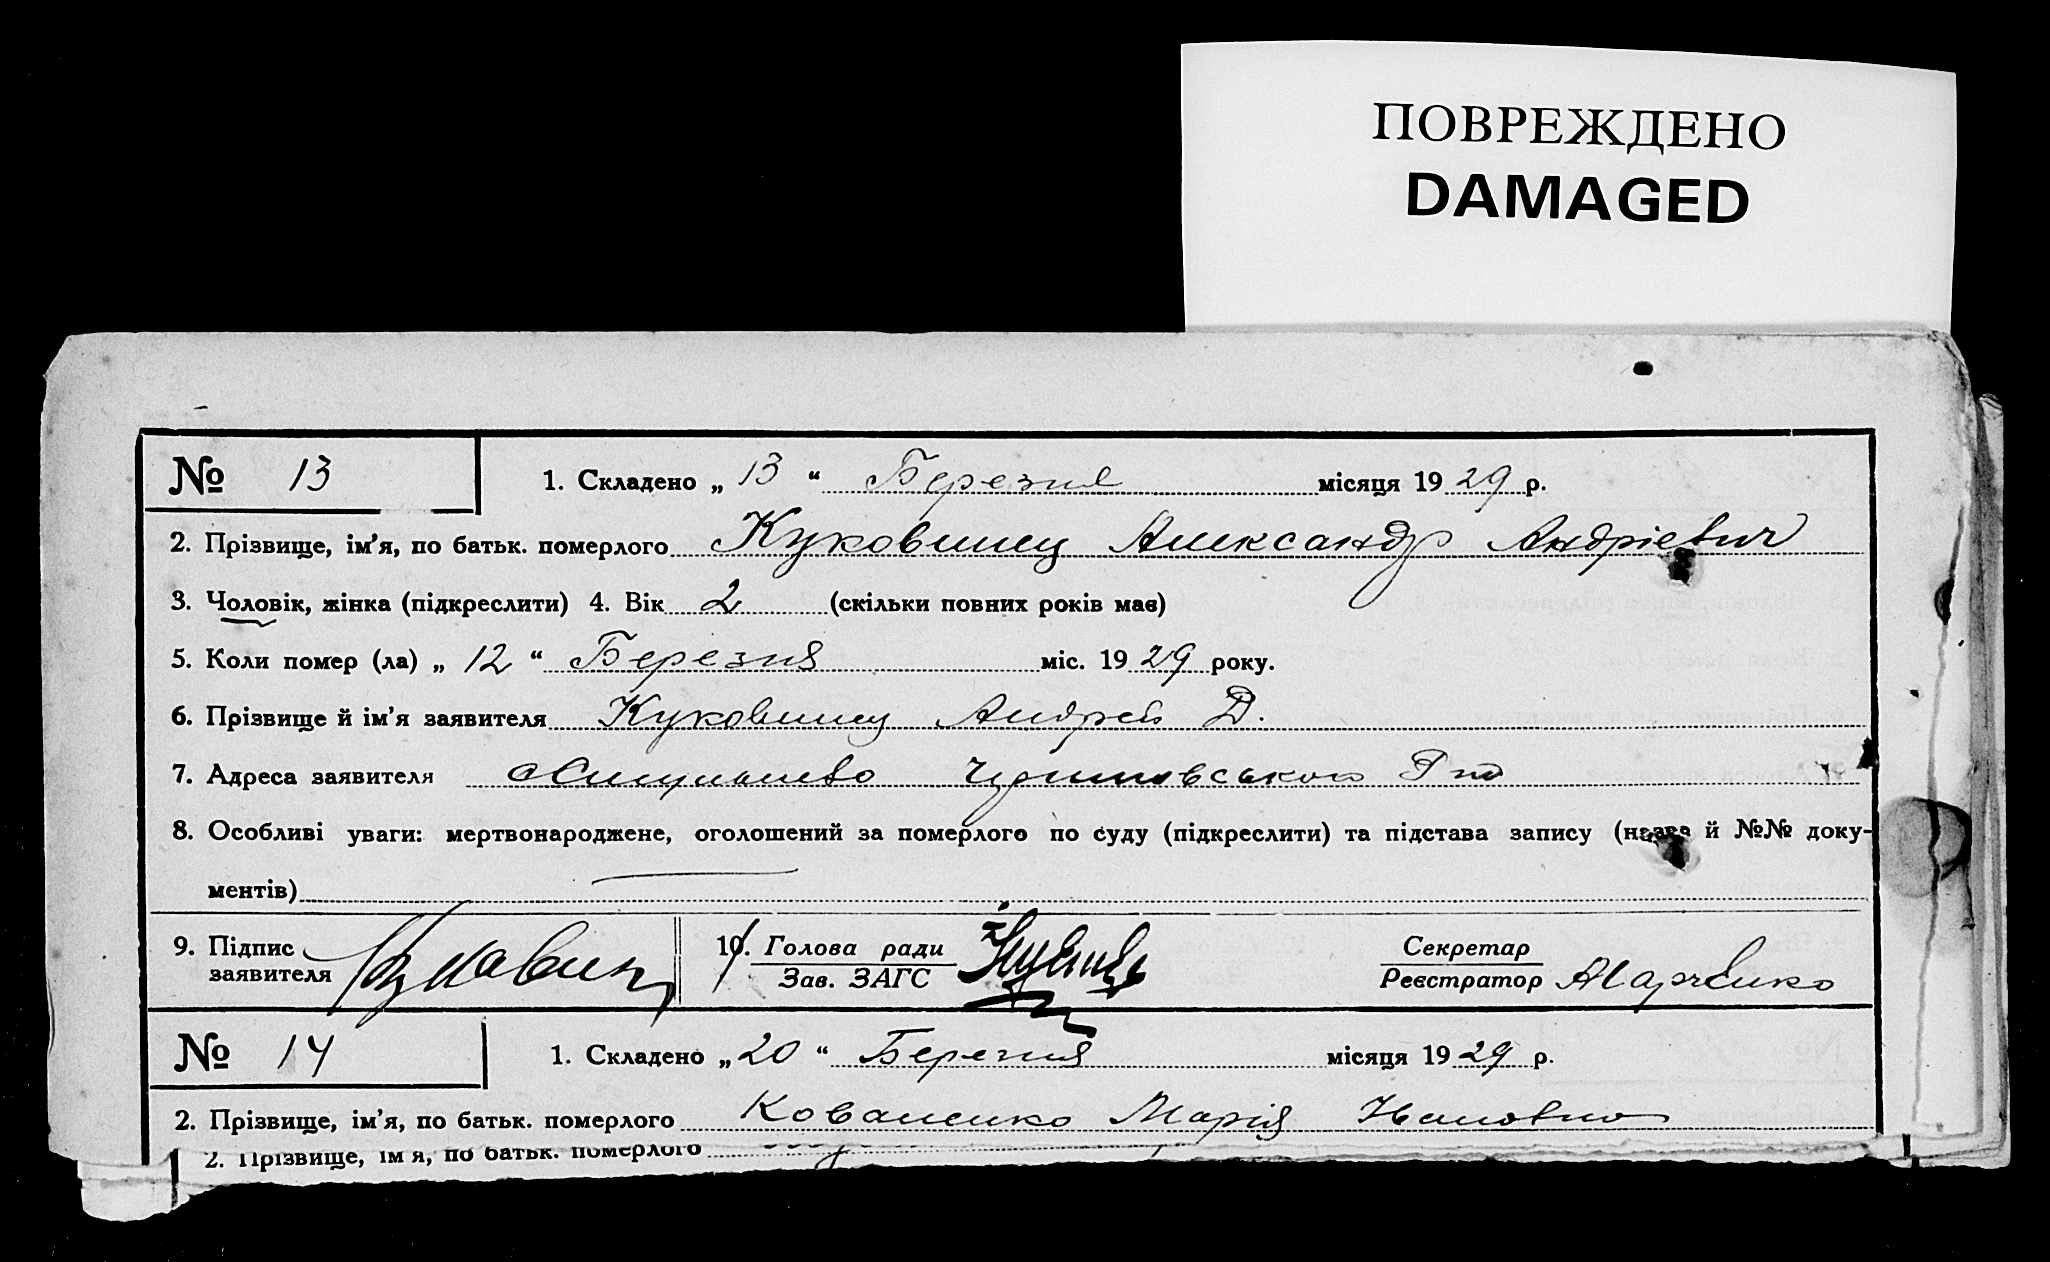 ПОВРЕЖДЕНО
DAMAGED
№ 13 1. Складено „ 13 “ Березня місяця 19 29 р.
2. Прізвище, ім'я, по батьк. померлого Куковинец Александр Андрієвич
3. Чоловік, жінка (підкреслити) 4. Вік 2 (скільки повних років має)
5. Коли помер (ла) „ 12 “ Березня міс. 19 29 року.
6. Прізвище й ім'я заявителя Куковинец Андрей Д.
7. Адреса заявителя
8. Особливі уваги: мертвонароджене, оголошений за померлого по суду (підкреслити) та підстава запису (назва й №№ доку-
ментів)
9. Підпис заявителя 10. Голова ради Зав. ЗАГС Секретар Реєстратор Марченко
№ 14 1. Складено „ 20 “ Березня місяця 19 29 р.
2. Прізвище, ім'я, по батьк. померлого Коваленко Марія
2. Прізвище, ім'я, по батьк. померлого